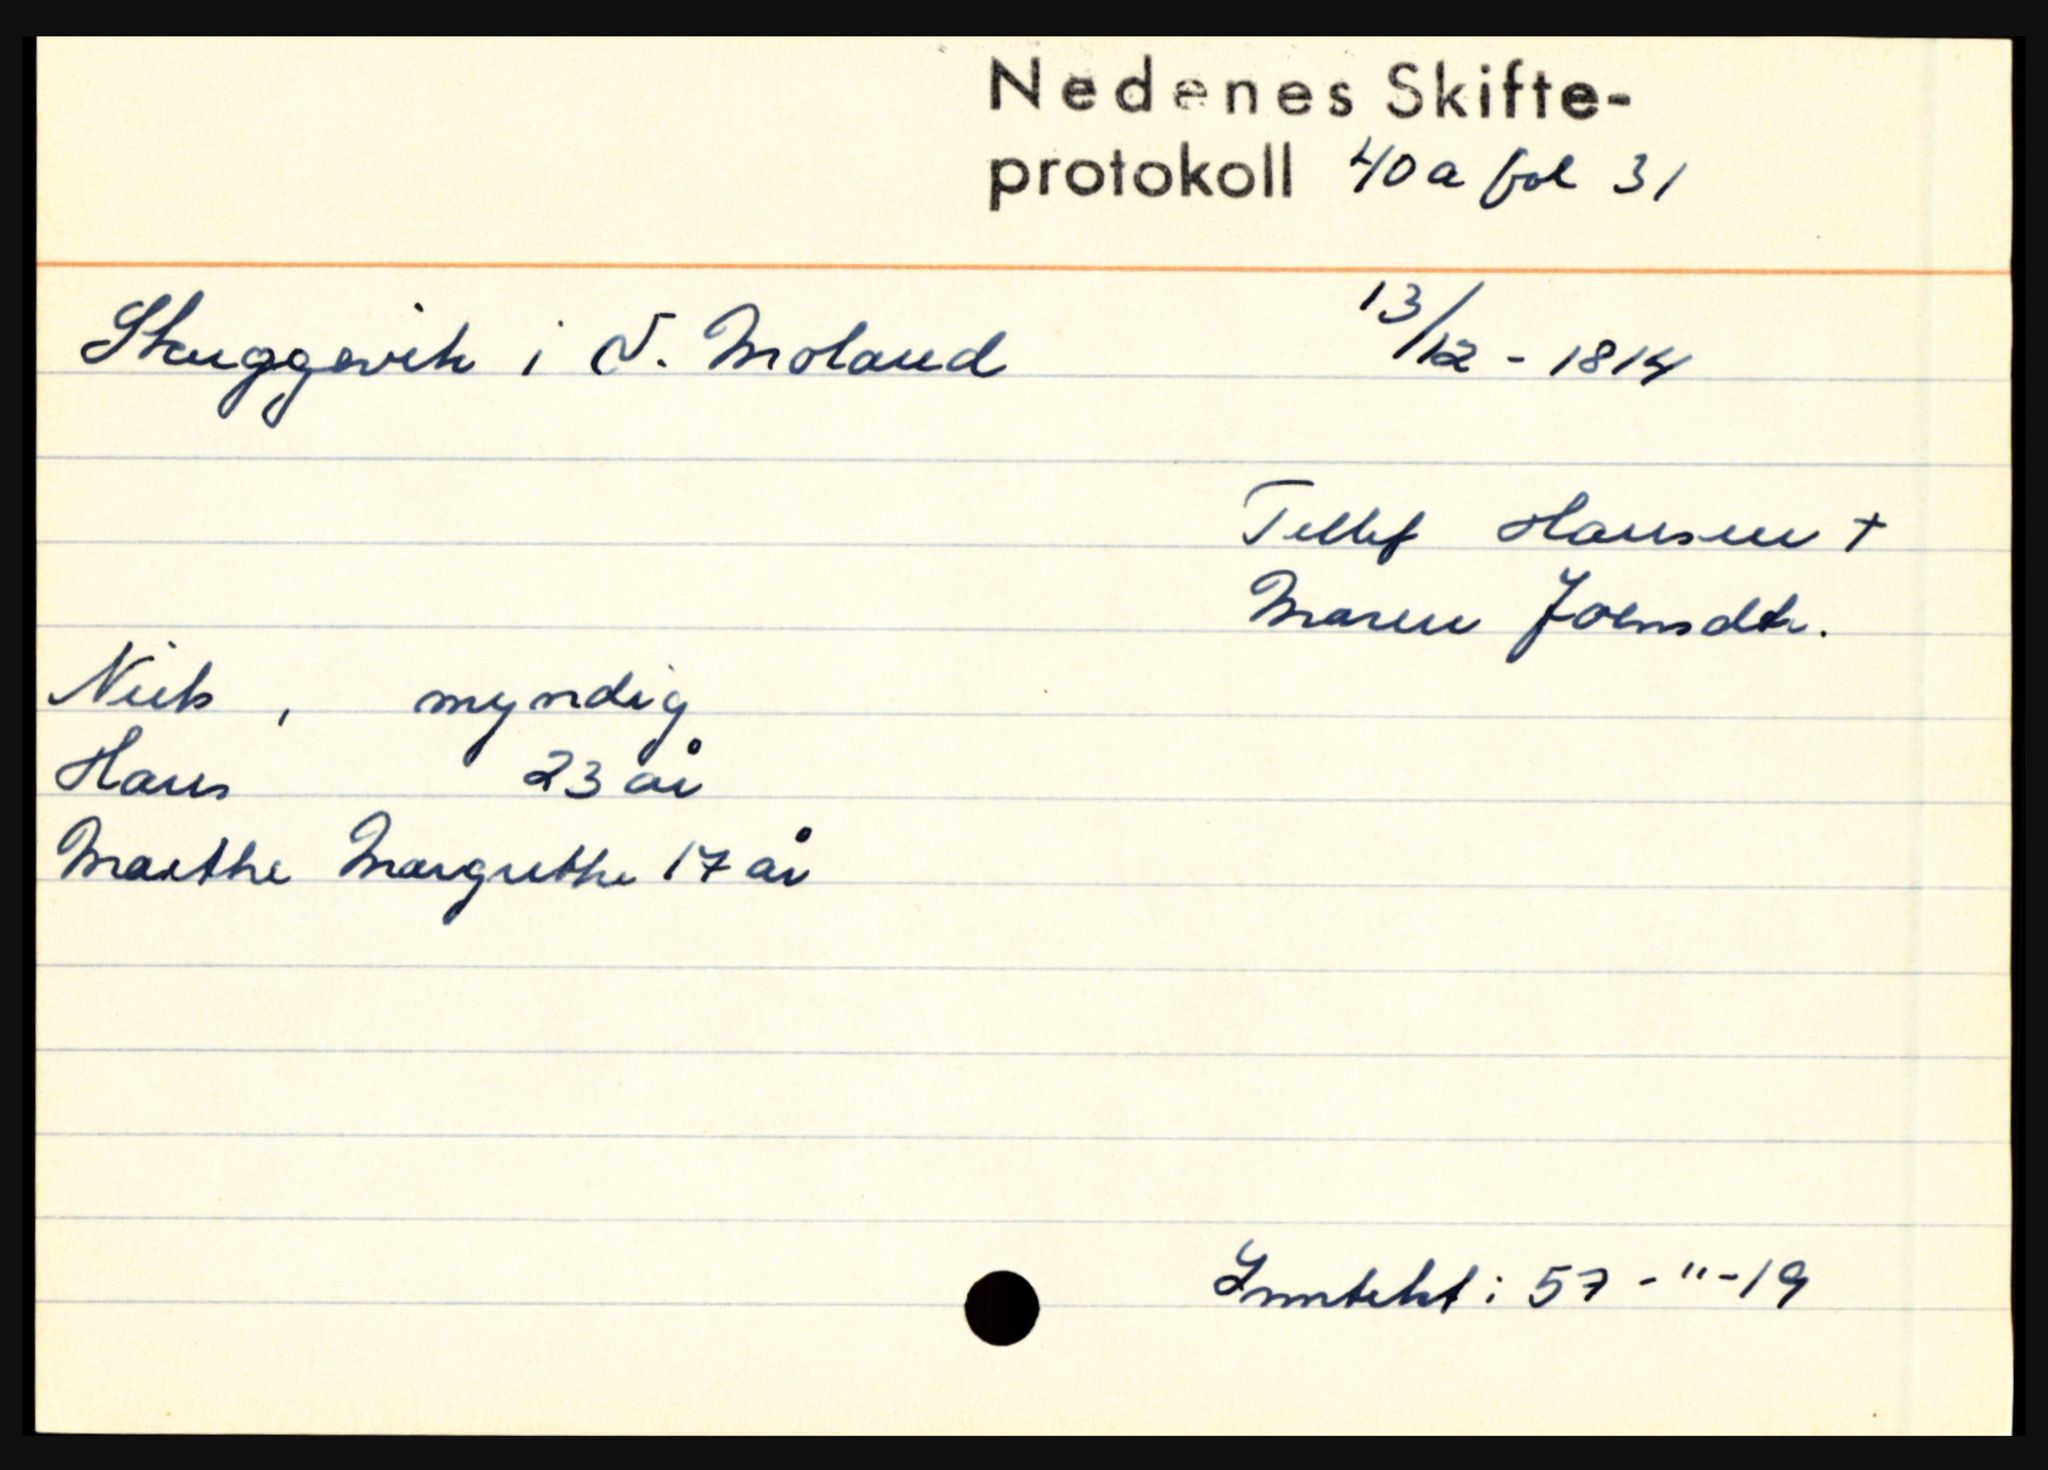 Nedenes Skifte-
protokoll 40a fol 31
Skuggevik i V. Moland 13/12 - 1814
Tellef Hansen +
Maren Joensdtr.
Niels, myndig
Hans 23 år
Marthe Margrethe 17 år
Inntekt: 57 - " - 19